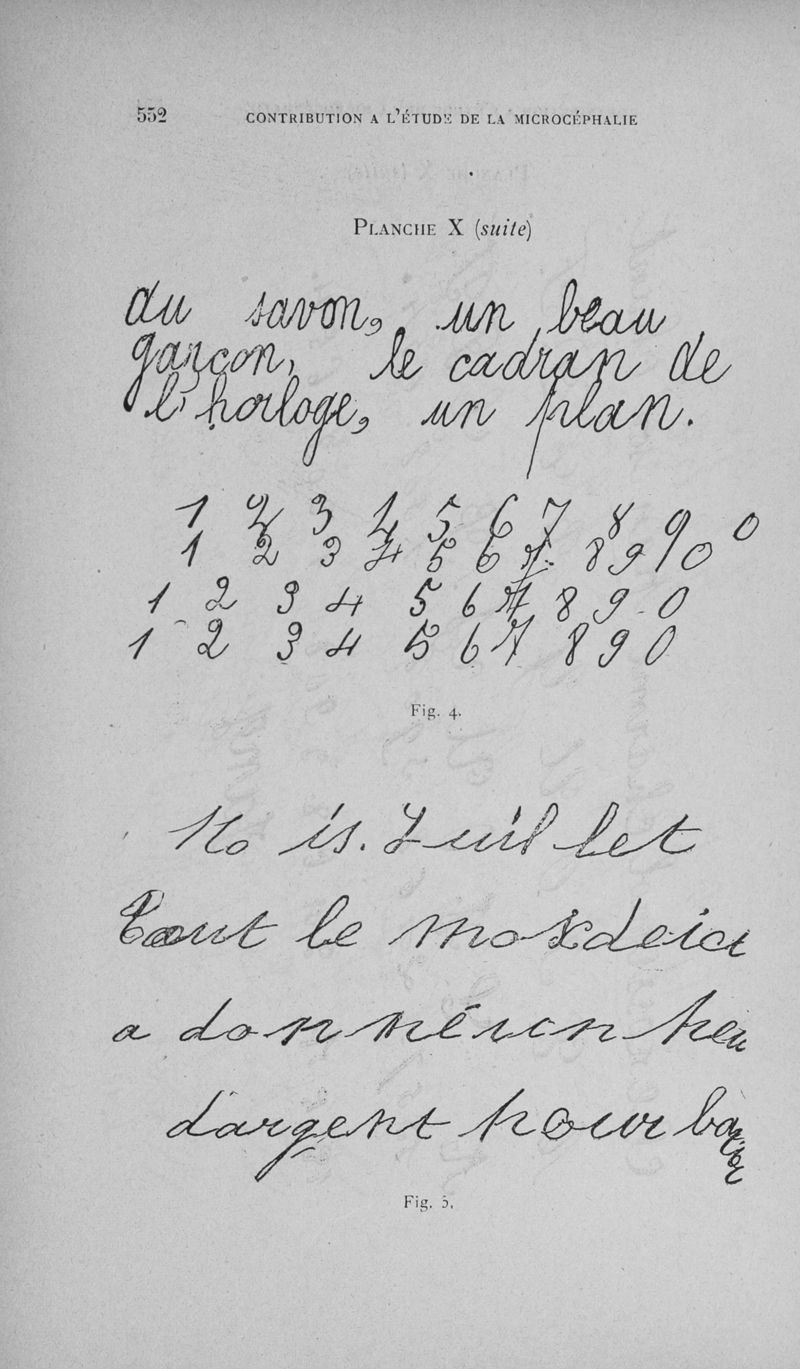 552 CONTRIBUTION A L'ÉTUDE DE LA MICROCÉPHALIE
PLANCHE X (suite)
du savon, un beau
garçon, le cadran de
l'horloge, un plan.
1 2 3 4 5 6 7 8 9 0
1 2 3 4 5 6 7 8 9 10
1 2 3 4 5 6 7 8 9 0
1 2 3 4 5 6 7 8 9 0
Fig. 4.
Juillet
tout le
a donné un peu
d'argent pour
Fig. 5.